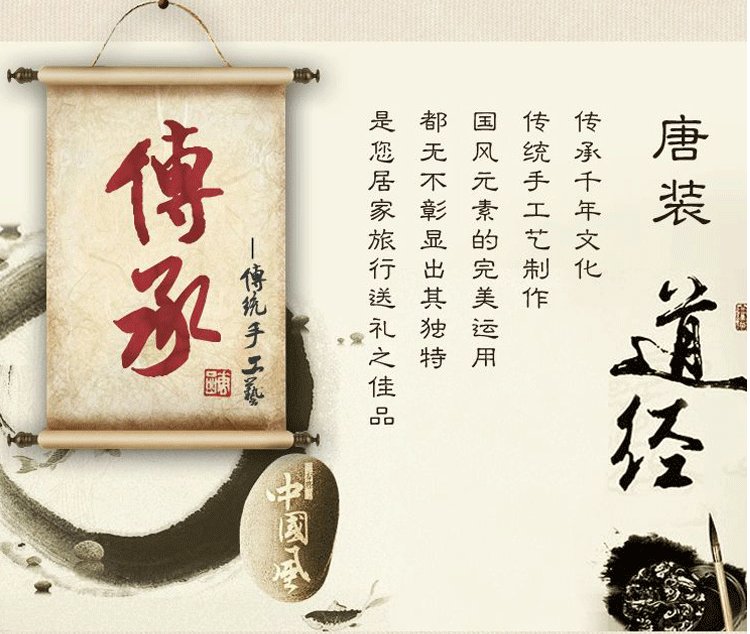 唐装
道经
传承千年文化
传统手工艺制作
国风元素的完美运用
都无不彰显出其独特
是您居家旅行送礼之佳品
傳承
—傳统手工藝
中國风